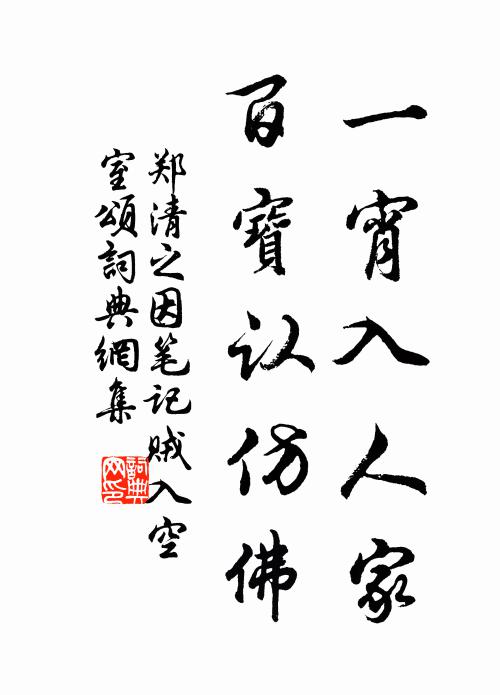 一宵入人家
百寶认仿佛
郑清之因笔记贼入空
室頌詞典網集
詞典
网印